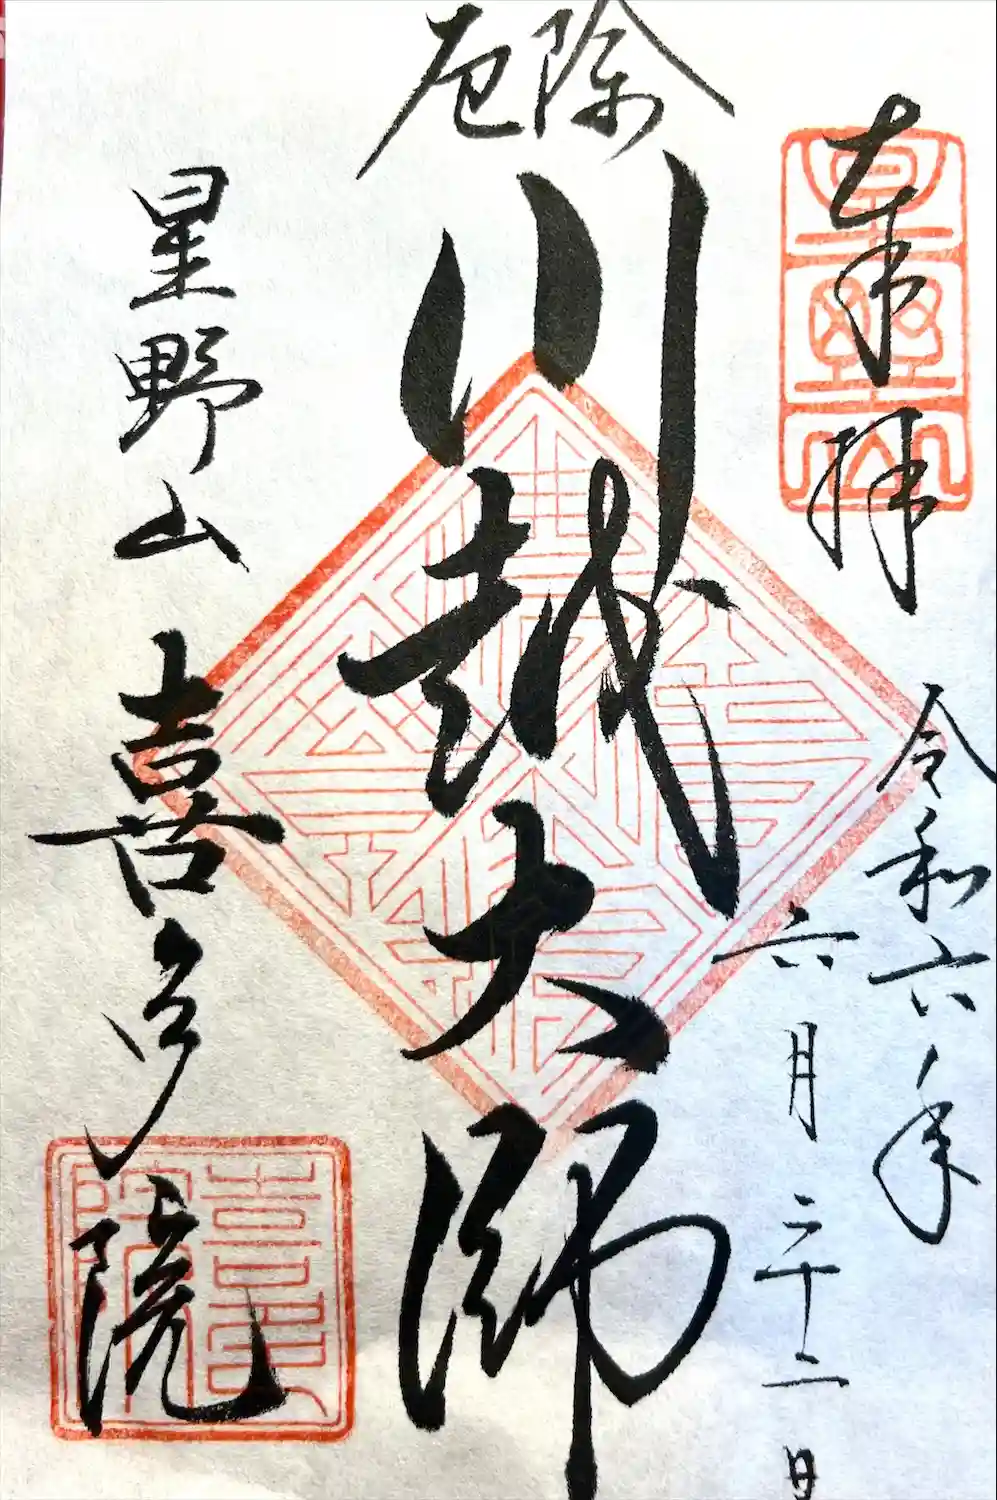 奉拝
令和六年
六月二十二日
厄除
川越大師
星野山
喜多院
星野山
喜多院